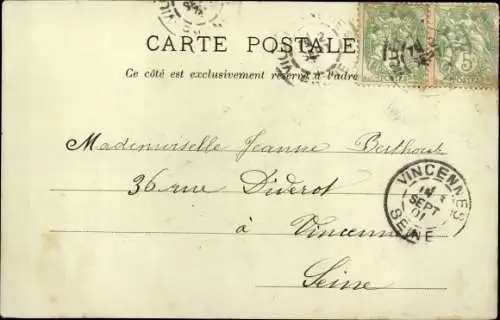 CARTE POSTALE
Ce côté est exclusivement réservé à l'adre
Mademoiselle Jeanne Berthout
36 rue Diderot
à Vincennes
Seine
VINCENNES
SEPT
01
SEINE
5
POSTES